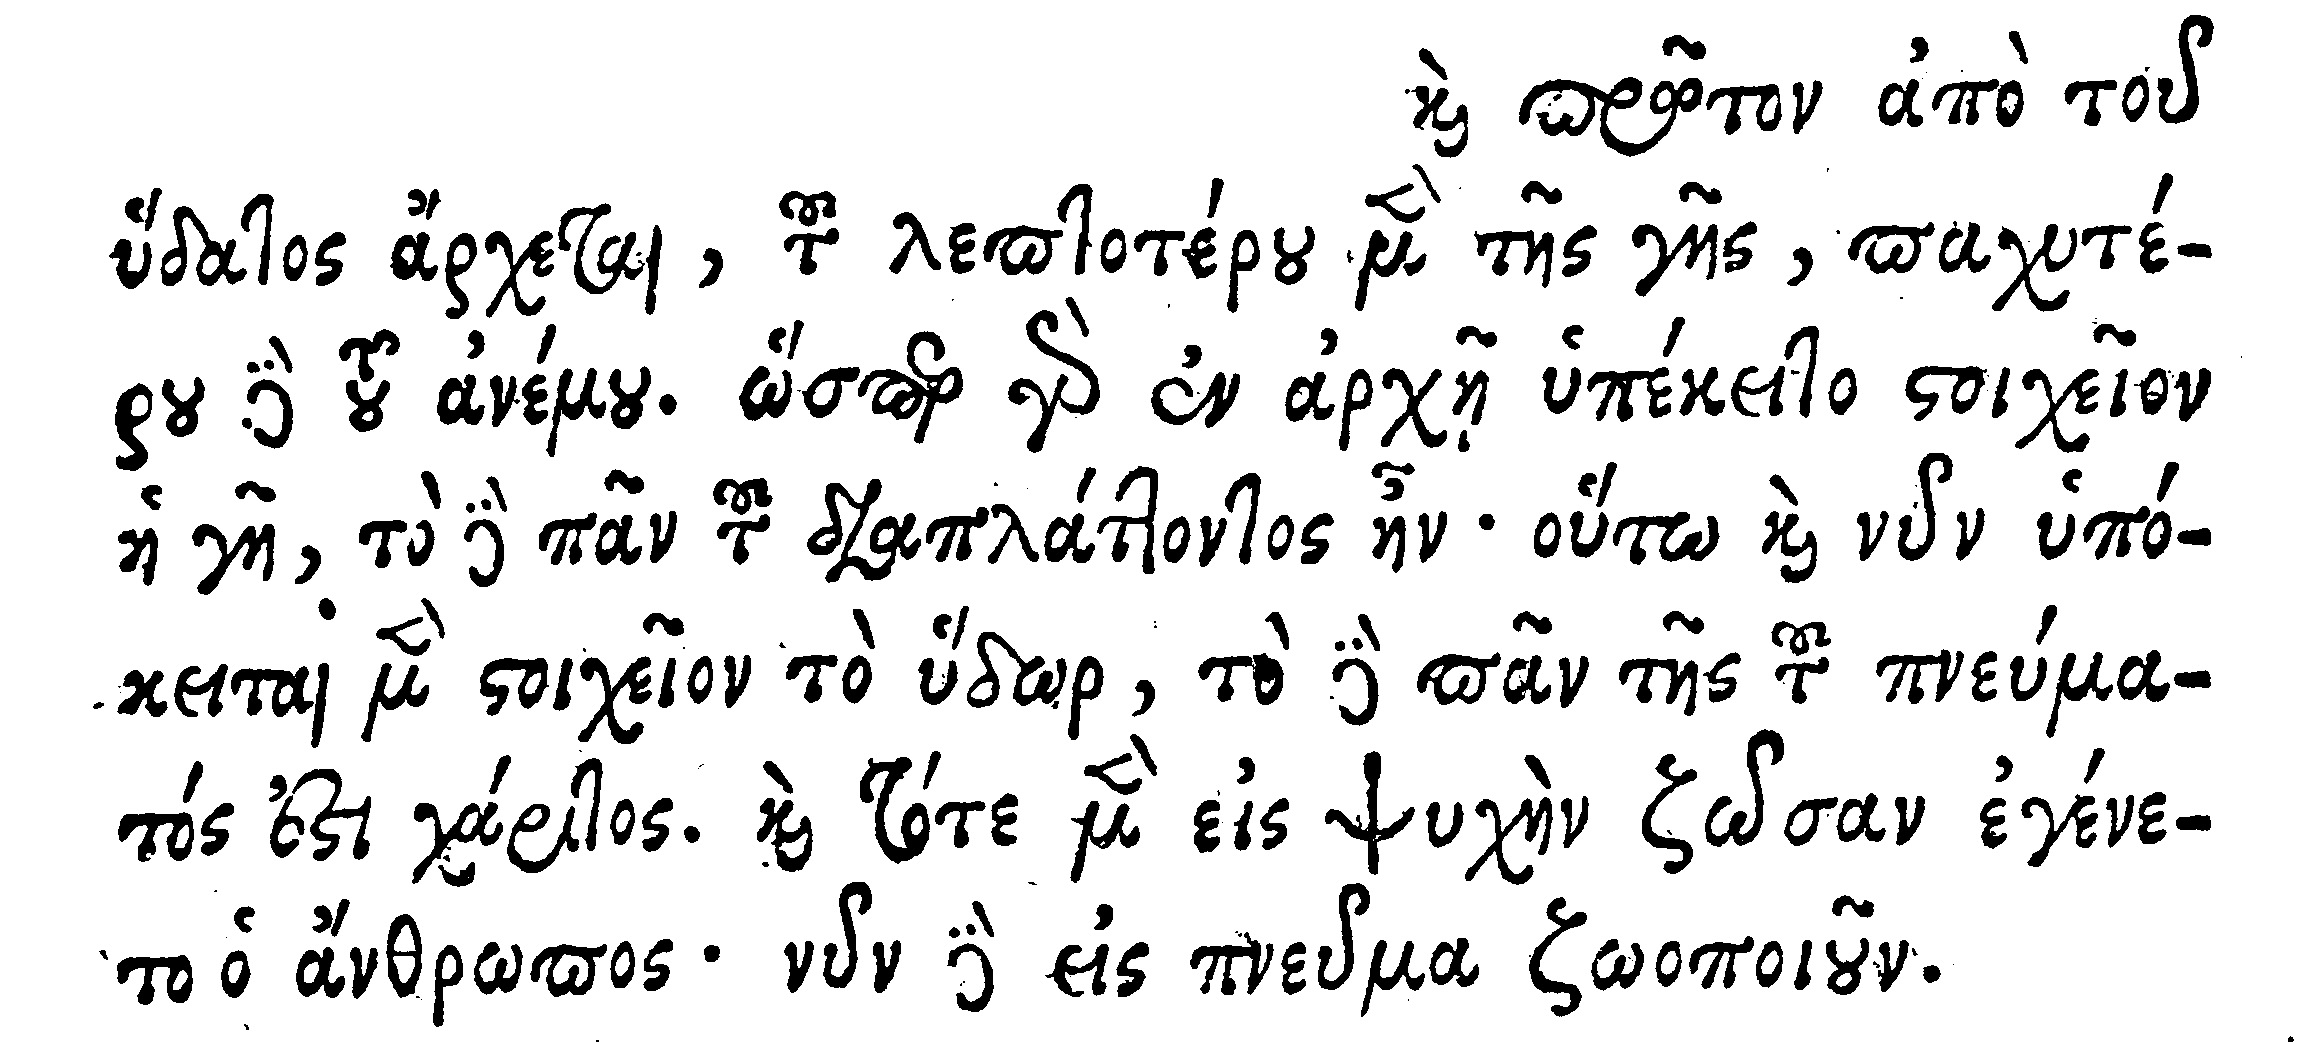 καὶ πρῶτον ἀπὸ τοῦ
ὕδατος ἄρχεται, τοῦ λεπτοτέρου μὲν τῆς γῆς, παχυτέ-
ρου δὲ τοῦ ἀνέμου. ὥσπερ γὰρ ἐν ἀρχῇ ὑπέκειτο στοιχεῖον
ἡ γῆ, τὸ δὲ πᾶν τοῦ διαπλάττοντος ἦν· οὕτω καὶ νῦν ὑπό-
κειται μὲν στοιχεῖον τὸ ὕδωρ, τὸ δὲ πᾶν τῆς τοῦ πνεύμα-
τός ἐστι χάριτος. καὶ τότε μὲν εἰς ψυχὴν ζῶσαν ἐγένε-
το ὁ ἄνθρωπος· νῦν δὲ εἰς πνεῦμα ζωοποιοῦν.